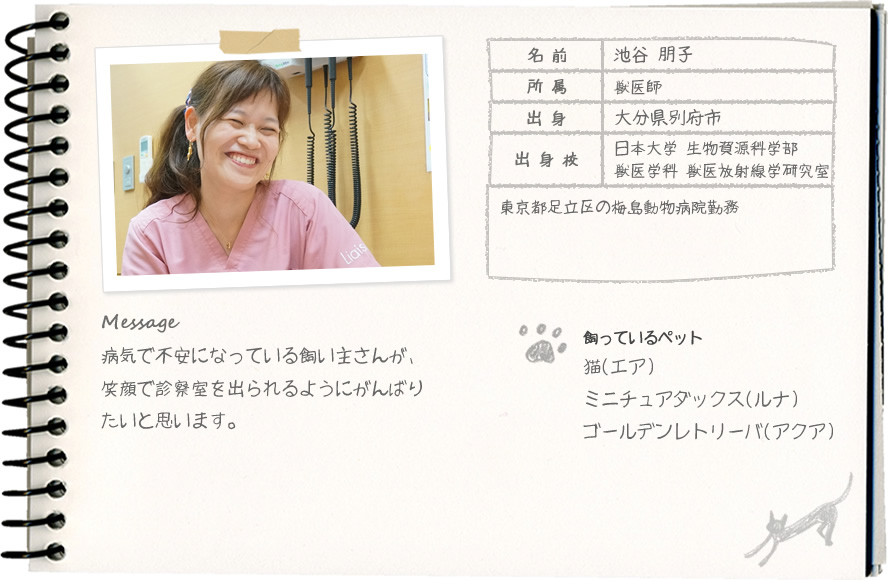 名前 池谷 朋子
所属 獣医師
出身 大分県別府市
出身校 日本大学 生物資源科学部
獣医学科 獣医放射線学研究室
東京都足立区の梅島動物病院勤務
liais
Message
病気で不安になっている飼い主さんが、
笑顔で診察室を出られるようにがんばり
たいと思います。
飼っているペット
猫(エア)
ミニチュアダックス(ルナ)
ゴールデンレトリーバ(アクア)